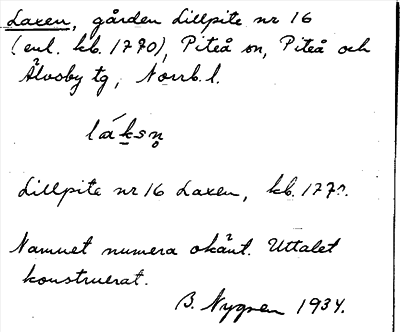 Laxen, gården Lillpite nr 16
(enl. kb. 1770), Piteå sn, Piteå och
Älvsby tg, Norrb. l.
láksn̥
Lillpite nr 16 Laxen, kb. 177?.
Namnet numera okänt. Uttalet
konstruerat.
B. Nygren 1934.